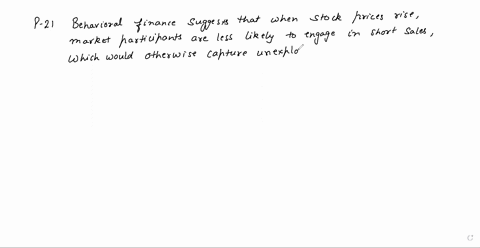 P-21 Behavioral finance suggests that when stock prices rise,
market participants are less likely to engage in short sales,
which would otherwise capture unexplo